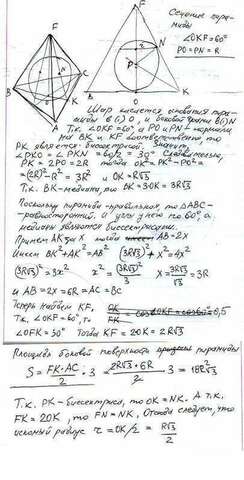 F
F
Сечение пирамиды
∠OKF=60°
PO = PN = R
N
P
B
C
O
K
A
B
O
K
Шар касается основания пирамиды в (·) O, и боковой грани в (·) N
Т.к. ∠OKF=60°, а PO и PN – нормали
на BK и KF соответственно, то
PK является биссектрисой. Значит,
∠PKO = ∠PKN = 60/2 = 30° Следовательно,
PK = 2PO = 2R тогда OK² = PK² - PO² =
= (2R)² - R² = 3R² и OK = R√3
Т.к. BK - медиана, то BK = 3OK = 3R√3
Поскольку пирамида правильная, то △ABC -
равносторонний. и углы у него по 60°, а
медианы являются биссектрисами.
Примем AK за X тогда AB = 2X
Имеем BK² + AK² = AB² (3R√3)² + X² = 4X²
(3R√3)² = 3x² x² = (3R√3)²/3 X = 3R√3/√3 = 3R
и AB = 2X = 6R = AC = BC
Теперь найдем KF. OK/FK = cos∠OKF = cos60° = 0,5
Т.к. ∠OKF = 60°, то
∠OFK = 30° Тогда KF = 2OK = 2R√3
Площадь боковой поверхности пирамиды
S = FK·AC/2 · 3 = 2R√3 · 6R/2 · 3 = 18R²√3
Т.к. PK - биссектриса, то OK = NK. А т.к.
FK = 2OK, то FN = NK, Отсюда следует, что
искомый радиус r = OK/2 = R√3/2